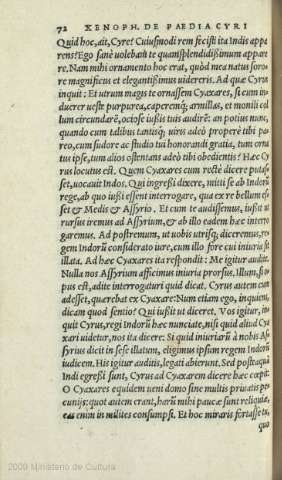 72 XENOPH. DE PÆDIA CYRI
Quid hoc, ait, Cyre! Cuiusmodi rem fecisti ita Indis appa
rens? Ego sanè uolebam te quàm splendidissimum appare
re. Nam mihi ornamento hoc erat, quòd mea natus soro-
re magnificus et elegantissimus uidereris. Ad quæ Cyrus
inquit: Et utrum magis te ornassem Cyaxares, si cum in-
ducerer ueste purpurea, caperemq; armillas, et monili col
lum circundarē, ociose iussis tuis audirē: an potius nunc,
quando cum talibus tantisq; uiris adeò properè tibi pa-
reo, cum sudore ac studio tui honorandi gratia, tum orna
tus ipse, tum alios ostentans adeò tibi obedientes? Hæc Cy
rus locutus est. Quem Cyaxares cum rectè dicere putas-
set, uocauit Indos. Qui ingressi dixere, missi se ab Indorū
rege, ab quo iussi essent interrogare, qua ex re bellum es-
set & Medis & Assyrio. Et cum te audissemus, iussit ut
rursus iremus ad Assyrium, & ab illo eadem hæc interro
garemus. Ad postremum, ut uobis utrisq; diceremus, re-
gem Indorū considerato iure, cum illo fore cui iniuria sit
illata. Ad hæc Cyaxares ita respondit: Me igitur audite.
Nulla nos Assyrium afficimus iniuria prorsus. Illum, si o-
pus est, adite interrogaturi quid dicat. Cyrus autem cum
adesset, quærebat ex Cyaxare: Num etiam ego, inquiens,
dicam quod sentio? Qui iussit ut diceret. Vos igitur, in-
quit Cyrus, regi Indorū hæc nunciate, nisi quid aliud Cya
xari uidetur, nos ita dicere: Si quid iniuriarū à nobis As-
syrius dicit in sese illatum, eligimus ipsum regem Indorū
iudicem. His igitur auditis, legati abierunt. Sed postea quā
Indi egressi sunt, Cyrus ad Cyaxarem dicere hæc cœpit:
O Cyaxares equidem ueni domo sine multis priuatis pe-
cunijs: quot autem erant, harū mihi paucæ sunt reliquiæ,
eas enim in milites consumpsi. Et hoc miraris fortasse tu,
quo
2009 Ministerio de Cultura